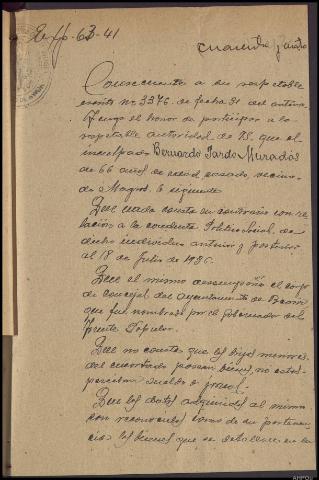 Exp. 63-41
cuarenta y cuatro
Consecuente a su respetable
escrito nº 3376 de fecha 31 del anterior
tengo el honor de participar a la
respetable autoridad de VS. que el
inculpado Bernardo Pardo Muradás
de 66 años de edad, casado, vecino
de Magros, lo siguiente
Que nada consta en contrario con re-
lación a la conducta Político Social de
dicho individuo anterior y posterior
al 18 de Julio de 1936.
Que el mismo desempeñó el cargo
de Concejal del Ayuntamiento de
que fué nombrado por el Gobernador del
Frente Popular.
Que no consta que los hijos menores
del encartado posean bienes, no
perciban sueldo o jornal.
Que los datos adquiridos al mismo
son reconocidos como de su pertenen-
cia los bienes que se detallan en la